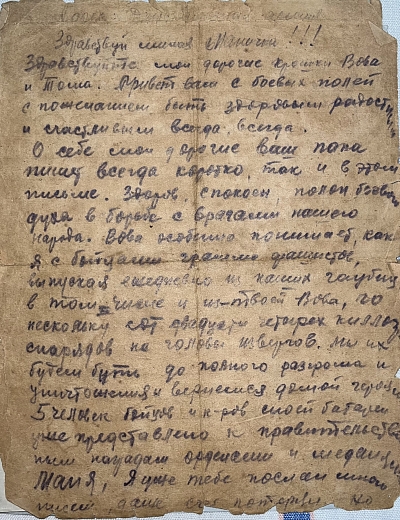 Здравствуй милая Манечка!!!
Здравствуйте мои дорогие крошки Вова
и Тома. Привет вам с боевых полей
с пожеланием быть здоровыми радостными
и счастливыми всегда, всегда.
О себе мои дорогие ваш папа
пишу всегда коротко, так и в этом
письме. Здоров, спокоен, полон боевого
духа в борьбе с врагами нашего
народа. Вова особенно понимает, как
я с бойцами громлю фашистов,
выпуская ежедневно из наших гаубиц
в том числе и из твоей Вова, по
несколько сот двадцати четырех килло
снарядов на головы извергов. Мы их
будем бить до полного разгрома и
уничтожения и вернемся домой героями
5 человек бойцов и к-ров моей батареи
уже представлено к правительствен
ным наградам орденами и медалями
Маня, я уже тебе послал много
писем даже счет потерял но